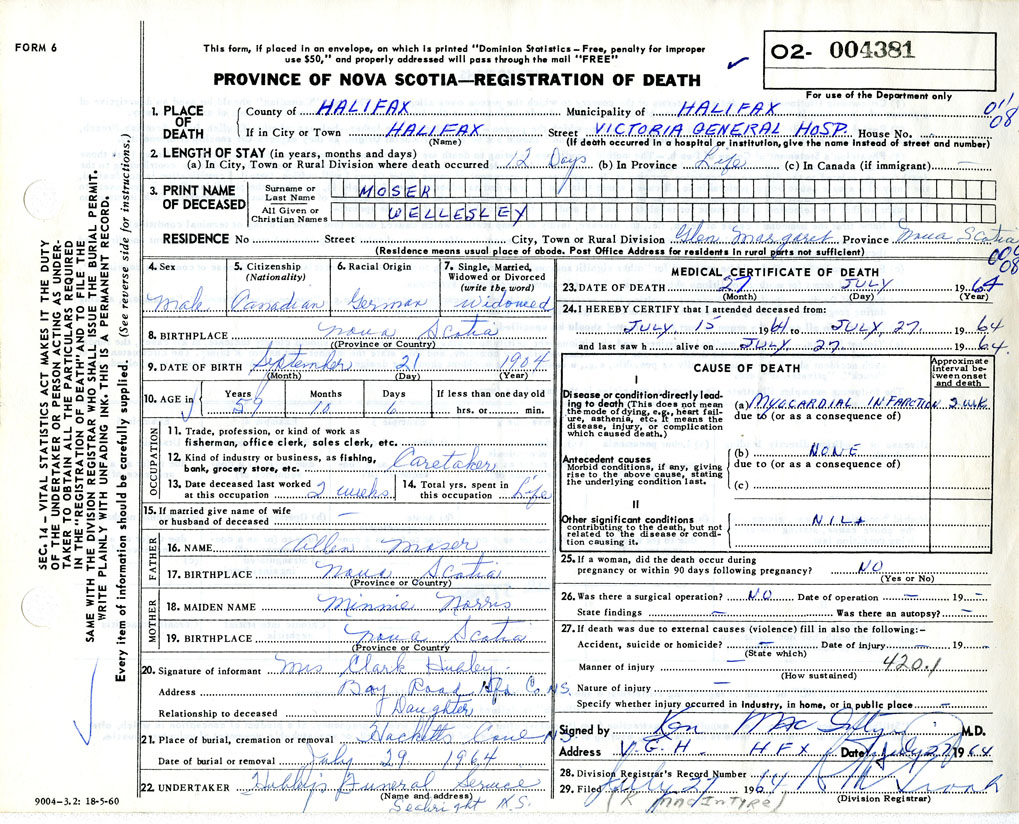 FORM 6
This form, if placed in an envelope, on which is printed "Dominion Statistics – Free, penalty for improper
use $50," and properly addressed will pass through the mail "FREE"
PROVINCE OF NOVA SCOTIA—REGISTRATION OF DEATH
O2- 004381
For use of the Department only
011
08
1. PLACE OF DEATH
County of HALIFAX Municipality of HALIFAX
If in City or Town HALIFAX Street VICTORIA GENERAL HOSP. House No.
(Name) (If death occurred in a hospital or institution, give the name instead of street and number)
2. LENGTH OF STAY (in years, months and days)
(a) In City, Town or Rural Division where death occurred 12 Days (b) In Province Life (c) In Canada (if immigrant) —
3. PRINT NAME OF DECEASED
Surname or Last Name MOSER
All Given or Christian Names WELLESLEY
RESIDENCE No Street City, Town or Rural Division Glen Margaret Province Nova Scotia
(Residence means usual place of abode. Post Office Address for residents in rural parts not sufficient)
08
4. Sex
Male
5. Citizenship (Nationality)
Canadian
6. Racial Origin
German
7. Single, Married, Widowed or Divorced (write the word)
Widowed
8. BIRTHPLACE Nova Scotia
(Province or Country)
9. DATE OF BIRTH September 21 1904
(Month) (Day) (Year)
10. AGE in
Years Months Days If less than one day old
59 10 6 hrs. or min.
OCCUPATION
11. Trade, profession, or kind of work as
fisherman, office clerk, sales clerk, etc.
12. Kind of industry or business, as fishing,
bank, grocery store, etc. Caretaker
13. Date deceased last worked at this occupation 2 weeks
14. Total yrs. spent in this occupation Life
15. If married give name of wife
or husband of deceased —
FATHER
16. NAME Allen Moser
17. BIRTHPLACE Nova Scotia
(Province or Country)
MOTHER
18. MAIDEN NAME Minnie Norris
19. BIRTHPLACE Nova Scotia
(Province or Country
20. Signature of informant Mrs Clark Hubley.
Address Bay Road Hfx Co. N.S.
Relationship to deceased Daughter
21. Place of burial, cremation or removal Hacketts Cove N.S.
Date of burial or removal July 29 1964
22. UNDERTAKER Hubley's Funeral Service
(Name and address)
Seabright N.S.
9004–3.2: 18-5-60
MEDICAL CERTIFICATE OF DEATH
23. DATE OF DEATH 27 JULY 1964
(Month) (Day) (Year)
24. I HEREBY CERTIFY that I attended deceased from:
JULY 15 1964 to JULY, 27. 19 64
and last saw h alive on JULY 27. 19 64.
CAUSE OF DEATH
Approximate interval between onset and death
I
Disease or condition directly leading to death (This does not mean
the mode of dying, e.g., heart failure, asthenia, etc. It means the
disease, injury, or complication
which caused death.)
(a) MYOCARDIAL INFARCTION 2 WK
due to (or as a consequence of)
Antecedent causes
Morbid conditions, if any, giving
rise to the above cause, stating
the underlying condition last.
(b) NONE
due to (or as a consequence of)
(c)
II
Other significant conditions
contributing to the death, but not
related to the disease or condition causing it.
NIL
25. If a woman, did the death occur during
pregnancy or within 90 days following pregnancy? NO
(Yes or No)
26. Was there a surgical operation? NO Date of operation — 19 —
State findings — Was there an autopsy? —
27. If death was due to external causes (violence) fill in also the following:–
Accident, suicide or homicide? — Date of injury — 19
(State which)
420.1
Manner of injury —
(How sustained)
Nature of injury —
Specify whether injury occurred in industry, in home, or in public place —
Signed by Ken M.D.
Address V.G.H. HFX Date July 27 1964
28. Division Registrar's Record Number
29. Filed July 27 1964
(Division Registrar)
(K MACINTYRE)
SEC. 14 – VITAL STATISTICS ACT MAKES IT THE DUTY
OF THE UNDERTAKER OR PERSON ACTING AS UNDERTAKER TO OBTAIN ALL THE PARTICULARS REQUIRED
IN THE "REGISTRATION OF DEATH" AND TO FILE THE
SAME WITH THE DIVISION REGISTRAR WHO SHALL ISSUE THE BURIAL PERMIT.
WRITE PLAINLY WITH UNFADING INK. THIS IS A PERMANENT RECORD.
Every item of information should be carefully supplied. (See reverse side for instructions.)